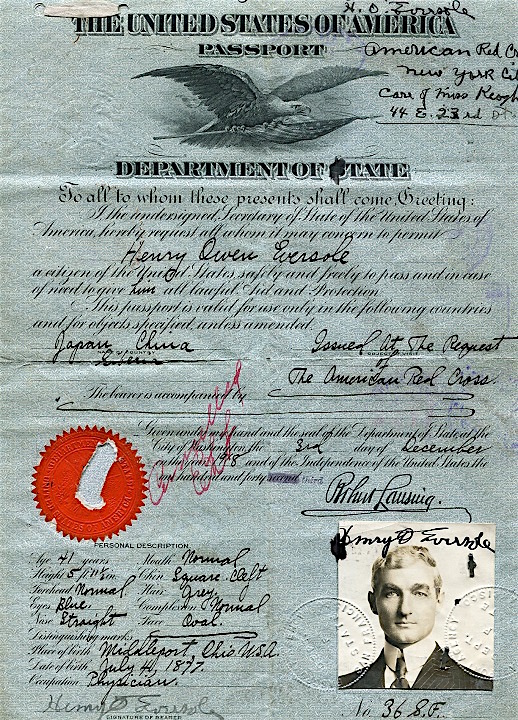 H. O. Eversole
THE UNITED STATES OF AMERICA
PASSPORT
American Red Cr
New York Cit
Care of Miss Keogh
44 E. 23rd St.
DEPARTMENT OF STATE
To all to whom these presents shall come, Greeting:
I the undersigned, Secretary of State of the United States of
America, hereby request all whom it may concern to permit
Henry Owen Eversole
a citizen of the United States, safely and freely to pass and in case
of need to give him all lawful Aid and Protection.
This passport is valid for use only in the following countries
and for objects specified, unless amended.
Japan China Issued At The Request
NAME OF COUNTRY
OBJECT OF VISIT
Siberia of
The American Red Cross.
The bearer is accompanied by
Cancelled
Given under my hand and the seal of the Department of State at the
City of Washington the 3rd day of December
in the year 1918 and of the Independence of the United States the
one hundred and forty second third
Robert Lansing.
PERSONAL DESCRIPTION
Age 41 years Mouth Normal
Height 5 ft. in. Chin Square, Cleft
Forehead Normal Hair Grey
Eyes Blue Complexion Normal
Nose Straight Face Oval
Distinguishing marks
Place of birth Middleport, Ohio U.S.A.
Date of birth July 4, 1877.
Occupation Physician.
Henry O Eversole
SIGNATURE OF BEARER
Henry O Eversole
No. 36 S.F.